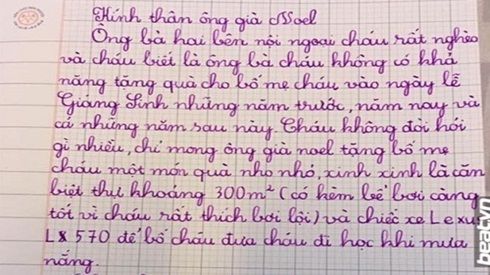 Kính thân ông già Noel
Ông bà hai bên nội ngoại cháu rất nghèo
và cháu biết là ông bà cháu không có khả
năng tặng quà cho bố mẹ cháu vào ngày lễ
Giáng Sinh những năm trước, năm nay và
cả những năm sau này. Cháu không đòi hỏi
gì nhiều, chỉ mong ông già noel tặng bố mẹ
cháu một món quà nho nhỏ, xinh xinh là căn
biệt thự khoảng 300m² (có kèm bể bơi càng
tốt vì cháu rất thích bơi lội) và chiếc xe Lexus
LX 570 để bố cháu đưa cháu đi học khi mưa
nắng.
beatvn